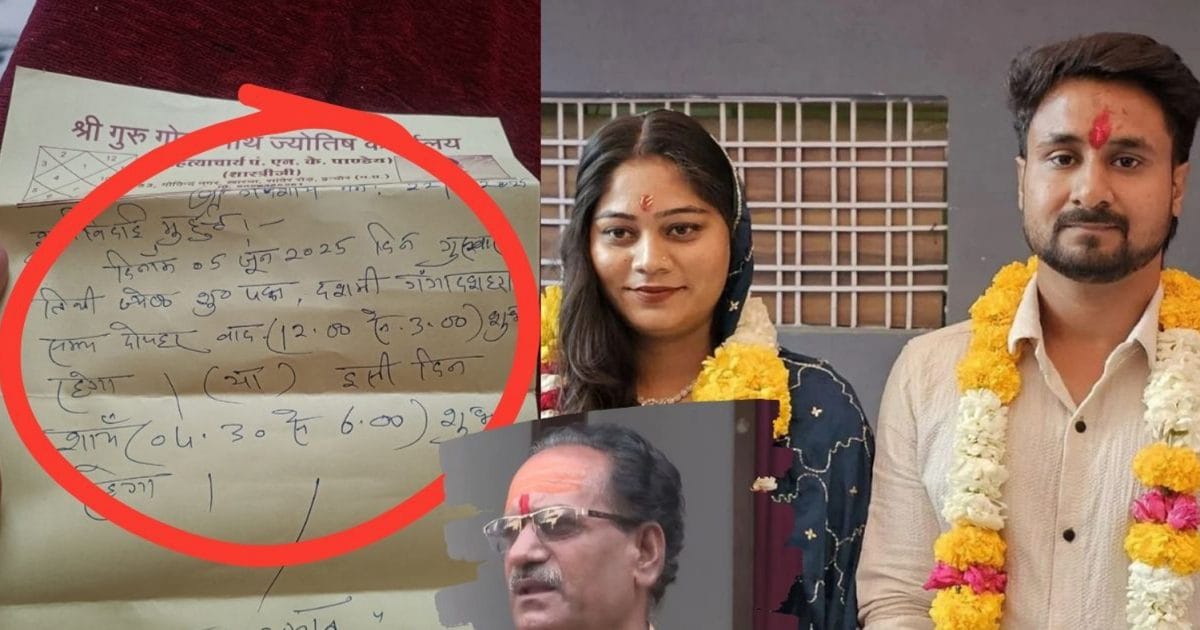 श्री गुरु ज्योतिष
पं. एन. के. पाण्डेय)
(शास्त्रीजी)
3 2 12
मुहुर्त ।-
दिनाँक 05 जून 2025 दिन गुरुवार
तिथी ज्येष्ठ शु० पक्ष, दशमी गंगादशहरा
समय दोपहर बाद (12.00 से 3.00) शुभ
रहेगा । (या) इसी दिन
शाम (04.30 से 6.00) शुभ
रहेगा ।